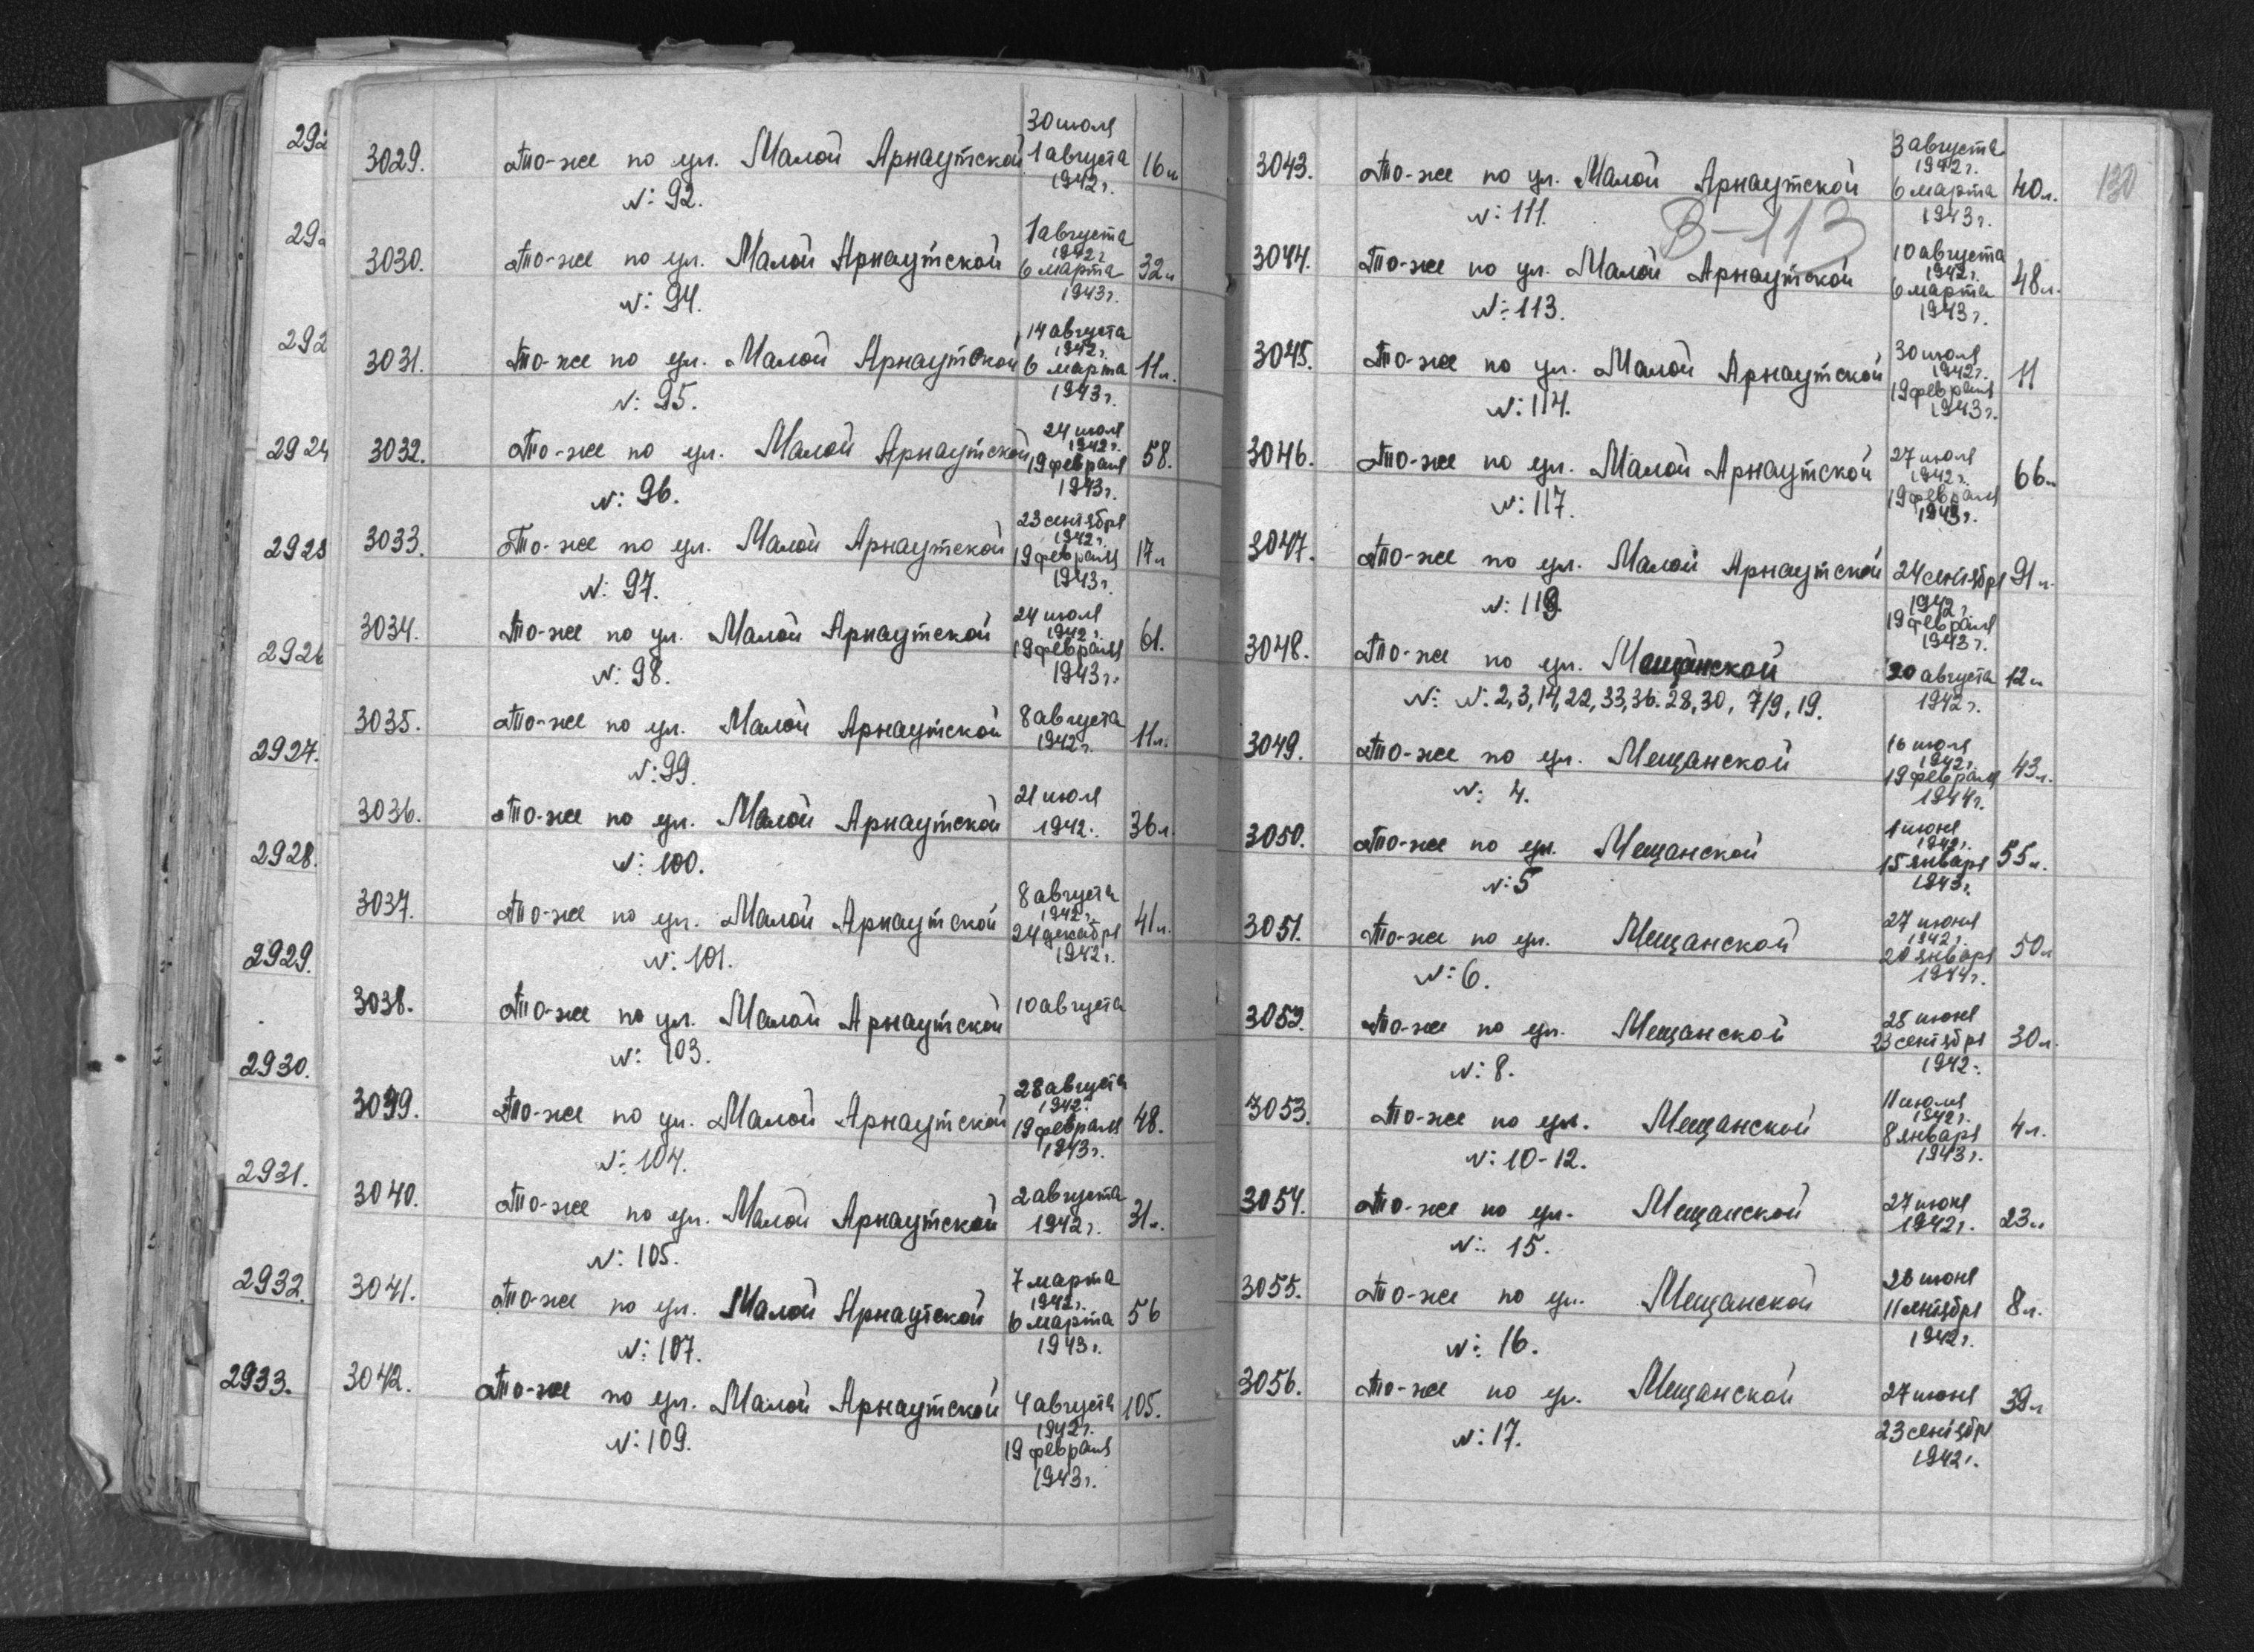 292
292
292
2924
2925
2926
2927.
2928.
2929.
2930.
2931.
2932.
2933.
3029. То-же по ул. Малой Арнаутской 30 июля 16 л
№ 92. 1 августа
1942 г.
3030. То-же по ул. Малой Арнаутской 1 августа 32 л
№ 94. 1942 г.
6 марта
1943 г.
3031. То-же по ул. Малой Арнаутской 14 августа 11 л.
№ 95. 1942 г.
6 марта
1943 г.
3032. То-же по ул. Малой Арнаутской 24 июля 58.
№ 96. 1942 г.
19 февраля
1943 г.
3033. То-же по ул. Малой Арнаутской 23 сентября 17 л
№ 97. 1942 г.
19 февраля
1943 г.
3034. То-же по ул. Малой Арнаутской 24 июля 61.
№ 98. 1942 г.
19 февраля
1943 г.
3035. То-же по ул. Малой Арнаутской 8 августа 11 л.
№ 99. 1942 г.
3036. То-же по ул. Малой Арнаутской 21 июля 36 л.
№ 100. 1942 г.
3037. То-же по ул. Малой Арнаутской 8 августа 41 л.
№ 101. 1942 г.
24 декабря
1942 г.
3038. То-же по ул. Малой Арнаутской 10 августа
№ 103.
3039. То-же по ул. Малой Арнаутской 28 августа 48.
№ 104. 1942 г.
19 февраля
1943 г.
3040. То-же по ул. Малой Арнаутской 2 августа 31 л.
№ 105. 1942 г.
3041. То-же по ул. Малой Арнаутской 7 марта 56
№ 107. 1942 г.
6 марта
1943 г.
3042. То-же по ул. Малой Арнаутской 4 августа 105.
№ 109. 1942 г.
19 февраля
1943 г.
130
3043. То-же по ул. Малой Арнаутской 3 августа 40 л.
№ 111. 1942 г.
6 марта
1943 г.
В-113
3044. То-же по ул. Малой Арнаутской 10 августа 48 л.
№ 113. 1942 г.
6 марта
1943 г.
3045. То-же по ул. Малой Арнаутской 30 июля 11
№ 114. 1942 г.
19 февраля
1943 г.
3046. То-же по ул. Малой Арнаутской 27 июля 66 л
№ 117. 1942 г.
19 февраля
1943 г.
3047. То-же по ул. Малой Арнаутской 24 сентября 91 л.
№ 119. 1942 г.
19 февраля
1943 г.
3048. То-же по ул. Мещанской 20 августа 12 л
№ № 2, 3, 14, 22, 33, 36. 28, 30, 7/9, 19. 1942 г.
3049. То-же по ул. Мещанской 16 июля 43 л.
№ 4. 1942 г.
19 февраля
1944 г.
3050. То-же по ул. Мещанской 1 июня 55 л.
№ 5 1942 г.
15 января
1943 г.
3051. То-же по ул. Мещанской 27 июня 50 л
№ 6. 1942 г.
20 января
1944 г.
3052. То-же по ул. Мещанской 25 июня 30 л.
№ 8. 23 сентября
1942 г.
3053. То-же по ул. Мещанской 11 июля 4 л.
№ 10-12. 1942 г.
8 января
1943 г.
3054. То-же по ул. Мещанской 27 июня 23 л
№ 15. 1942 г.
3055. То-же по ул. Мещанской 26 июня 8 л.
№ 16. 11 сентября
1942 г.
3056. То-же по ул. Мещанской 27 июня 39 л
№ 17. 23 сентября
1942 г.